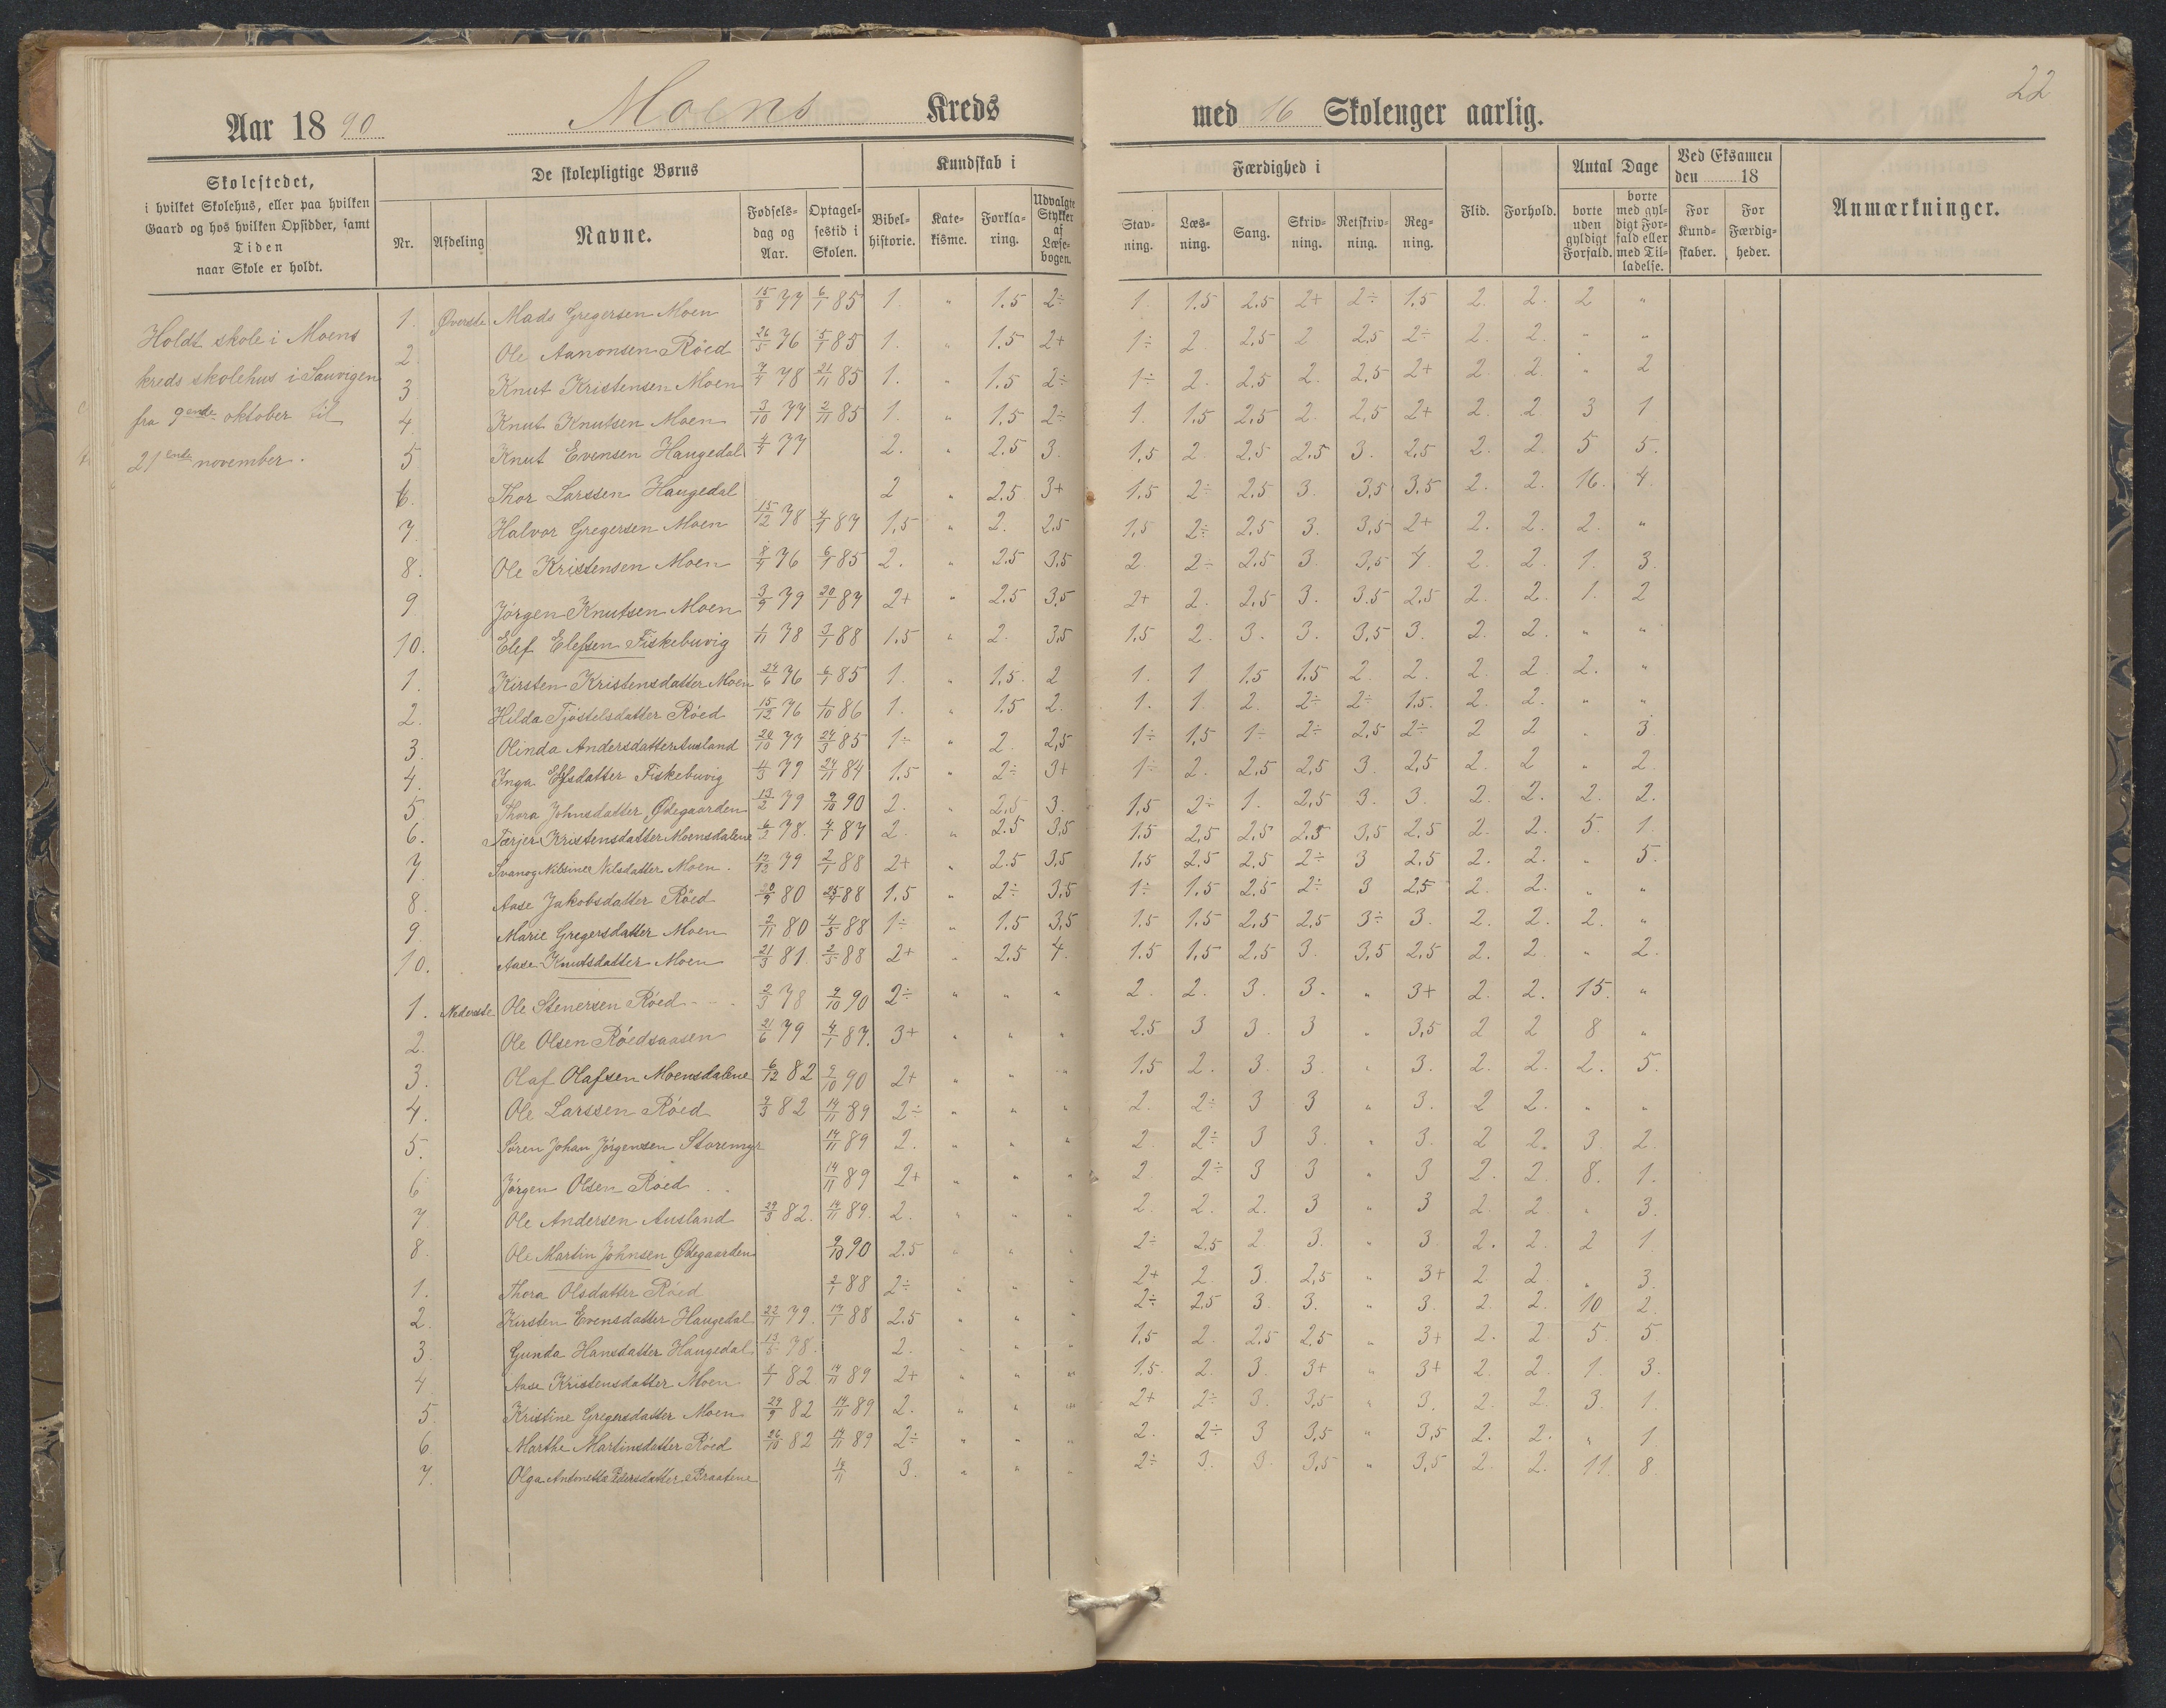 22
Aar 1890 Moens Kreds med 16 Skolenger aarlig.
Skolestedet,
i hvilket Skolehus, eller paa hvilken
Gaard og hos hvilken Opsidder, samt
Tiden
naar Skole er holdt.
De skolepligtige Børns
Nr. Afdeling Navne. Fødselsdag og Aar. Optagelsestid i Skolen.
Kundskab i
Bibelhistorie. Katekisme. Forklaring. Udvalgte Stykker af Læsebogen.
Færdighed i
Stavning. Læsning. Sang. Skrivning. Retskrivning. Regning.
Flid. Forhold.
Antal Dage
borte uden gyldigt Forfald. borte med gyldigt Forfald eller med Tilladelse.
Ved Eksamen den 18
For Kundskaber. For Færdigheder.
Anmærkninger.
Holdt skole i Moens
kreds skolehus i Sauvigen
fra 9ende oktober til
21ende november.
1. Øverste Mads Gregersen Moen 15/8 77 6/1 85 1. " 1.5 2÷ 1. 1.5 2.5 2+ 2÷ 1.5 2. 2. 2 "
2. Ole Aanonsen Røed 26/5 76 5/1 85 1. " 1.5 2+ 1÷ 2 2.5 2 2.5 2÷ 2. 2. " "
3 Knut Kristensen Moen 7/4 78 21/11 85 1. " 1.5 2÷ 1÷ 2. 2.5 2. 2.5 2+ 2. 2. " 2
4 Knut Knutsen Moen 3/10 77 2/11 85 1. " 1.5 2÷ 1. 1.5 2.5 2. 2.5 2+ 2. 2 3 1
5 Knut Evensen Haugedal 4/4 77 2. " 2.5 3. 1,5 2 2.5 2.5 3. 2.5 2. 2. 5 5.
6. Thor Larssen Haugedal 2 " 2.5 3+ 1.5 2÷ 2.5 3. 3,5 3.5 2. 2. 16. 4.
7. Halvor Gregersen Moen 15/12 78 4/1 87 1,5 " 2. 2.5 1,5 2÷ 2.5 3. 3,5 2+ 2. 2. 2. "
8. Ole Kristensen Moen 8/4 76 6/1 85 2. " 2.5 3.5 2. 2÷ 2.5 3 3,5 4 2. 2. 1. 3.
9. Jørgen Knutsen Moen 3/9 79 20/1 87 2+ " 2.5 3,5 2+ 2. 2.5 3. 3.5 2.5 2. 2. 1. 2
10. Elef Elefsen Fiskebuvig 1/11 78 3/1 88 1.5 " 2. 3.5 1.5 2. 3. 3. 3,5 3. 2. 2. " "
1. Kirsten Kristensdatter Moen 24/6 76 6/1 85 1. " 1,5. 2 1. 1 1.5 1.5 2 2. 2. 2 2. "
2. Hilda Tjöstelsdatter Røed 15/12 76 1/10 86 1. " 1.5 2. 1. 1. 2. 2÷ 2÷ 1.5. 2. 2. " "
3. Olinda Andersdatter Ausland 20/10 77 24/3 85 1÷ " 2. 2,5 1÷ 1,5 1÷ 2÷ 2.5 2÷ 2 2 " 3
4. Inga Elefsdatter Fiskebuvig 4/3 79 24/11 84 1.5 " 2÷ 3+ 1÷ 2. 2.5 2,5 3. 2,5 2. 2 " 2.
5. Thora Johnsdatter Ødegaarden 13/2 79 9/10 90 2. " 2,5 3. 1,5 2÷ 1. 2,5 3. 3. 2. 2. 2. 2.
6. Tærjer Kristensdatter Moensdalene 6/3 78. 4/1 87 2. " 2.5 3,5 1.5 2,5 2,5 2.5 3,5 2.5 2. 2. 5. 1
7. Svanog Nilsine Nilsdatter Moen. 12/12 79 2/1 88 2+ " 2.5 3,5 1,5 2.5 2.5 2÷ 3 2,5 2. 2. " 5.
8. Aase Jakobsdatter Röed 80 88 1.5 " 2÷ 3,5 1÷ 1.5 2.5 2÷ 3 2,5 2. 2. " "
9. Marie Gregersdatter Moen 2/11 80 4/5 88 1÷ " 1.5 3,5 1.5 1.5 2,5 2.5 3÷ 3. 2. 2. 2. "
10. Aase Knutsdatter Moen 21/3 81 2/5 88 2+ " 2.5 4. 1.5 1,5 2.5 3. 3,5 2,5 2. 2. " 2.
1. Nederste Ole Stenersen Röed 2/3 78 9/10 90 2÷ " " " 2. 2. 3. 3. " 3+ 2. 2. 15. "
2. Ole Olsen Röedsaasen 21/6 79 4/1 87. 3+ " " " 2.5 3 3. 3 " 3,5 2 2 8 "
3. Olaf Olafsen Moensdalene 6/12 82 9/10 90 2+ " " " 1.5 2. 3. 3. " 3. 2. 2. 2. 5.
4. Ole Larssen Röed 9/3 82 14/11 89 2÷ " " " 2. 2÷ 3 3 " 3. 2 2. " "
5. Sören Johan Jörgensen Storemyr 14/11 89 2. " " " 2. 2÷ 3 3. " 3. 2 2. 3. 2.
6 Jörgen Olsen Röed 14/11 89 2+ " " " 2. 2÷ 3 3 " 3 2. 2. 8. 1.
7 Ole Andersen Ausland 29/3 82. 14/11 89. 2. " " " 2. 2. 2. 3 " 3 2. 2. " 3.
8. Ole Martin Johnsen Ødegaarden 9/10 90 2.5 " " " 2÷ 2.5 2 3. " 3 2. 2. 2 1
1. Thora Olsdatter Röed 2/1 88 2÷ " " " 2+ 2 3. 2,5 " 3+ 2 2. " 3.
2. Kirsten Evensdatter Haugedal 22/11 79. 14/1 88 2.5 " " " 2÷ 2.5 3 3. " 3. 2. 2. 10 2.
3. Gunda Hansdatter Haugedal 13/5 78. 2. " " " 1.5 2. 2.5 2.5 " 3+ 2. 2 5. 5.
4 Aase Kristensdatter Moen 1/1 82 14/11 89 2+ " " " 1.5. 2. 3. 3+ " 3+ 2. 2. 1. 3.
5. Kristine Gregersdatter Moen 29/9 82 14/11 89 2. " " " 2+ 2÷ 3. 3,5 " 3. 2. 2. 3. 1.
6. Marthe Martinsdatter Röed 26/10 82 14/11 89 2÷ " " " 2. 2÷ 3 3,5 " 3,5 2. 2. " 1
7. Olga Antonetta Pedersdatter Braatene 14/11 3. " " " 2÷ 3. 3. 3,5 " 3,5 2. 2. 11. 8.